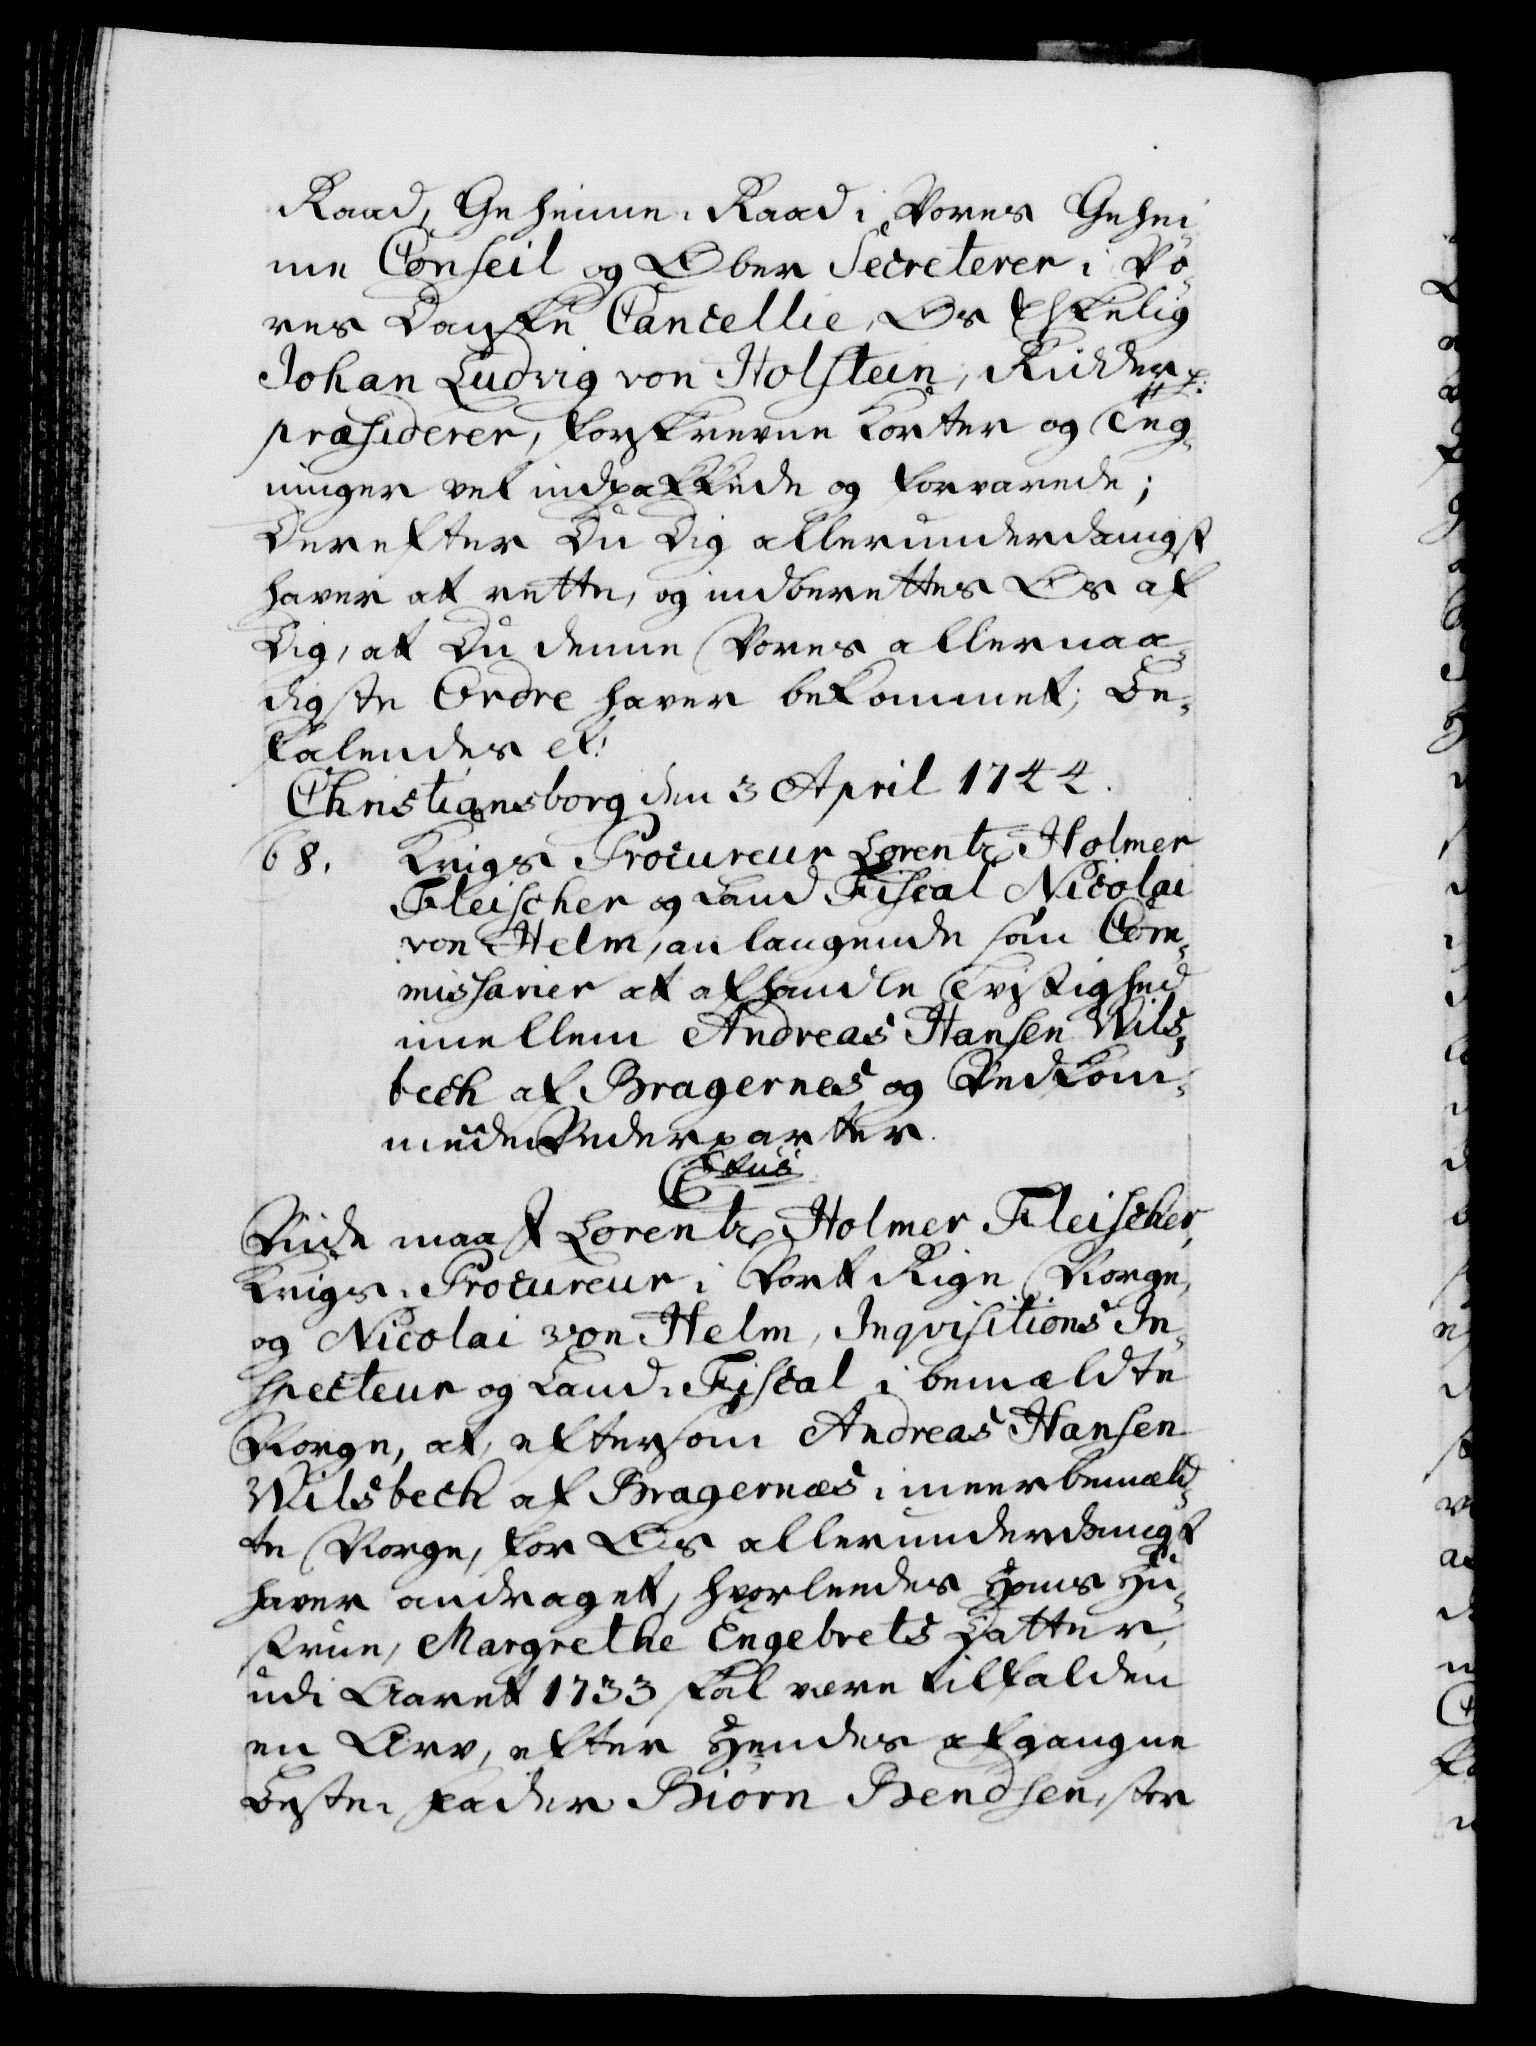 Raad, Geheime-Raad i Vores Gehei-
me Conseil og Ober Secreterer i Vo-
res Danske Cancellie, Os Elskelig
Johan Ludvig von Holstein, Ridder p:
præsiderer, forskrevne Korter og Teg-
ninger vel indpakkede og forvarede;
Derefter Du Dig allerunderdanigst
haver at rette, og indberettes Os af
Dig, at Du denne Vores allernaa-
digste Ordre haver bekommet; Be-
falendes etc:
Christiansborg den 3 April 1744.
68. Krigs Procureur Lorentz Holmer
Fleischer og Land Fiscal Nicolai
von Helm, anlangende som Com-
missarier at afhandle Tvistighed
imellem Andreas Hansen Wils-
bech af Bragernes og Vedkom-
mende Vederparter.
C6tus
Viide maa I Lorentz Holmer Fleischer,
Krigs-Procureur i Vort Rige Norge,
og Nicolai von Helm, Inqvisitions In-
specteur og Land-Fiscal i bemældte
Norge, at, eftersom Andreas Hansen
Wilsbech af Bragernæs i meerbemæld-
te Norge, for Os allerunderdanigst
haver andraget, hvorleedes Hans Hu-
strue, Margrethe Engebrets Datter,
udi Aaret 1733 skal være tilfalden
en Arv, efter Hendes afgangne
Beste-Fader Biørn Bendsen, stor